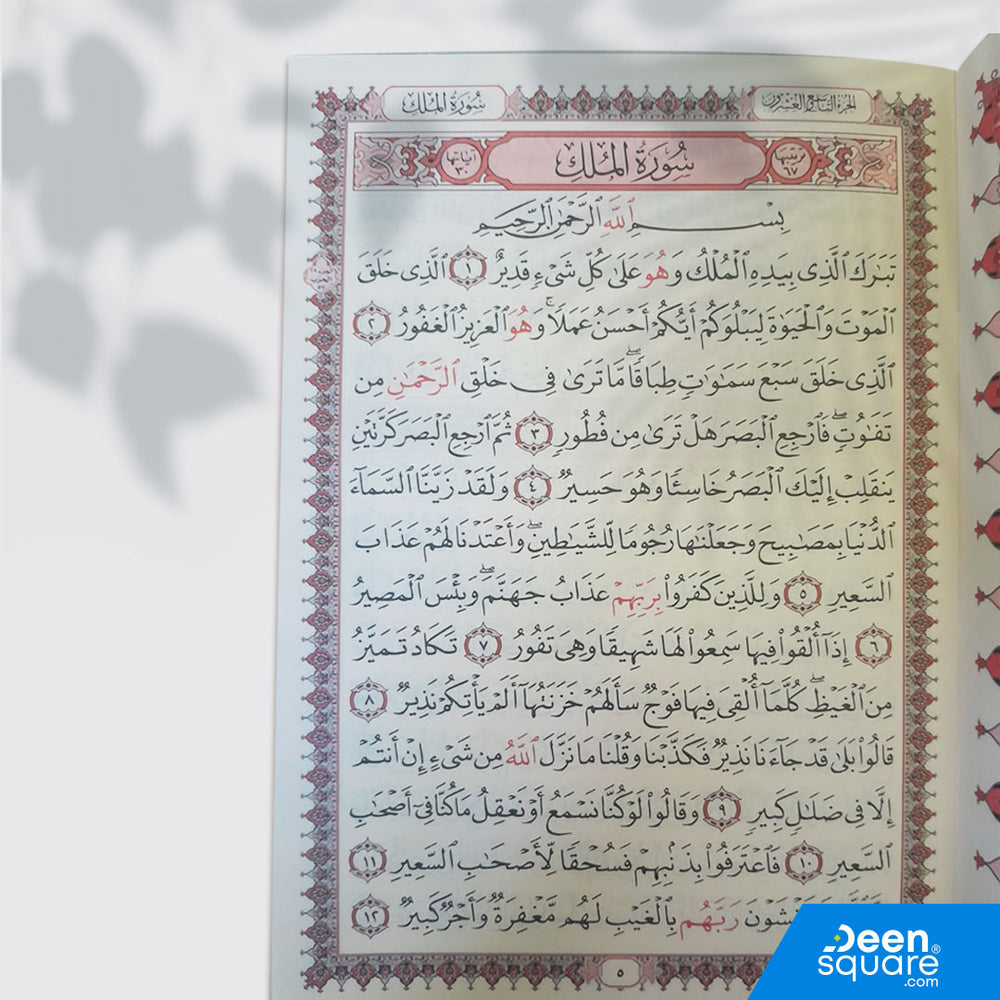 الجزء التاسع والعشرون
سُورَةُ المُلك
مرتبتها ٦٧
سُورَةُ المُلكِ
آياتها ٣٠
بِسْمِ ٱللَّهِ ٱلرَّحْمَٰنِ ٱلرَّحِيمِ
تَبَٰرَكَ ٱلَّذِى بِيَدِهِ ٱلْمُلْكُ وَهُوَ عَلَىٰ كُلِّ شَىْءٍ قَدِيرٌ ١ ٱلَّذِى خَلَقَ
ٱلْمَوْتَ وَٱلْحَيَوٰةَ لِيَبْلُوَكُمْ أَيُّكُمْ أَحْسَنُ عَمَلًا ۚ وَهُوَ ٱلْعَزِيزُ ٱلْغَفُورُ ٢
ٱلَّذِى خَلَقَ سَبْعَ سَمَٰوَٰتٍ طِبَاقًا ۖ مَّا تَرَىٰ فِى خَلْقِ ٱلرَّحْمَٰنِ مِن
تَفَٰوُتٍ ۖ فَٱرْجِعِ ٱلْبَصَرَ هَلْ تَرَىٰ مِن فُطُورٍ ٣ ثُمَّ ٱرْجِعِ ٱلْبَصَرَ كَرَّتَيْنِ
يَنقَلِبْ إِلَيْكَ ٱلْبَصَرُ خَاسِئًا وَهُوَ حَسِيرٌ ٤ وَلَقَدْ زَيَّنَّا ٱلسَّمَآءَ
ٱلدُّنْيَا بِمَصَٰبِيحَ وَجَعَلْنَٰهَا رُجُومًا لِّلشَّيَٰطِينِ ۖ وَأَعْتَدْنَا لَهُمْ عَذَابَ
ٱلسَّعِيرِ ٥ وَلِلَّذِينَ كَفَرُوا۟ بِرَبِّهِمْ عَذَابُ جَهَنَّمَ ۖ وَبِئْسَ ٱلْمَصِيرُ
٦ إِذَآ أُلْقُوا۟ فِيهَا سَمِعُوا۟ لَهَا شَهِيقًا وَهِىَ تَفُورُ ٧ تَكَادُ تَمَيَّزُ
مِنَ ٱلْغَيْظِ ۖ كُلَّمَآ أُلْقِىَ فِيهَا فَوْجٌ سَأَلَهُمْ خَزَنَتُهَآ أَلَمْ يَأْتِكُمْ نَذِيرٌ ٨
قَالُوا۟ بَلَىٰ قَدْ جَآءَنَا نَذِيرٌ فَكَذَّبْنَا وَقُلْنَا مَا نَزَّلَ ٱللَّهُ مِن شَىْءٍ إِنْ أَنتُمْ
إِلَّا فِى ضَلَٰلٍ كَبِيرٍ ٩ وَقَالُوا۟ لَوْ كُنَّا نَسْمَعُ أَوْ نَعْقِلُ مَا كُنَّا فِىٓ أَصْحَٰبِ
ٱلسَّعِيرِ ١٠ فَٱعْتَرَفُوا۟ بِذَنۢبِهِمْ فَسُحْقًا لِّأَصْحَٰبِ ٱلسَّعِيرِ ١١
رَبَّهُم بِٱلْغَيْبِ لَهُم مَّغْفِرَةٌ وَأَجْرٌ كَبِيرٌ ١٢
٥
Deen®
square
.com